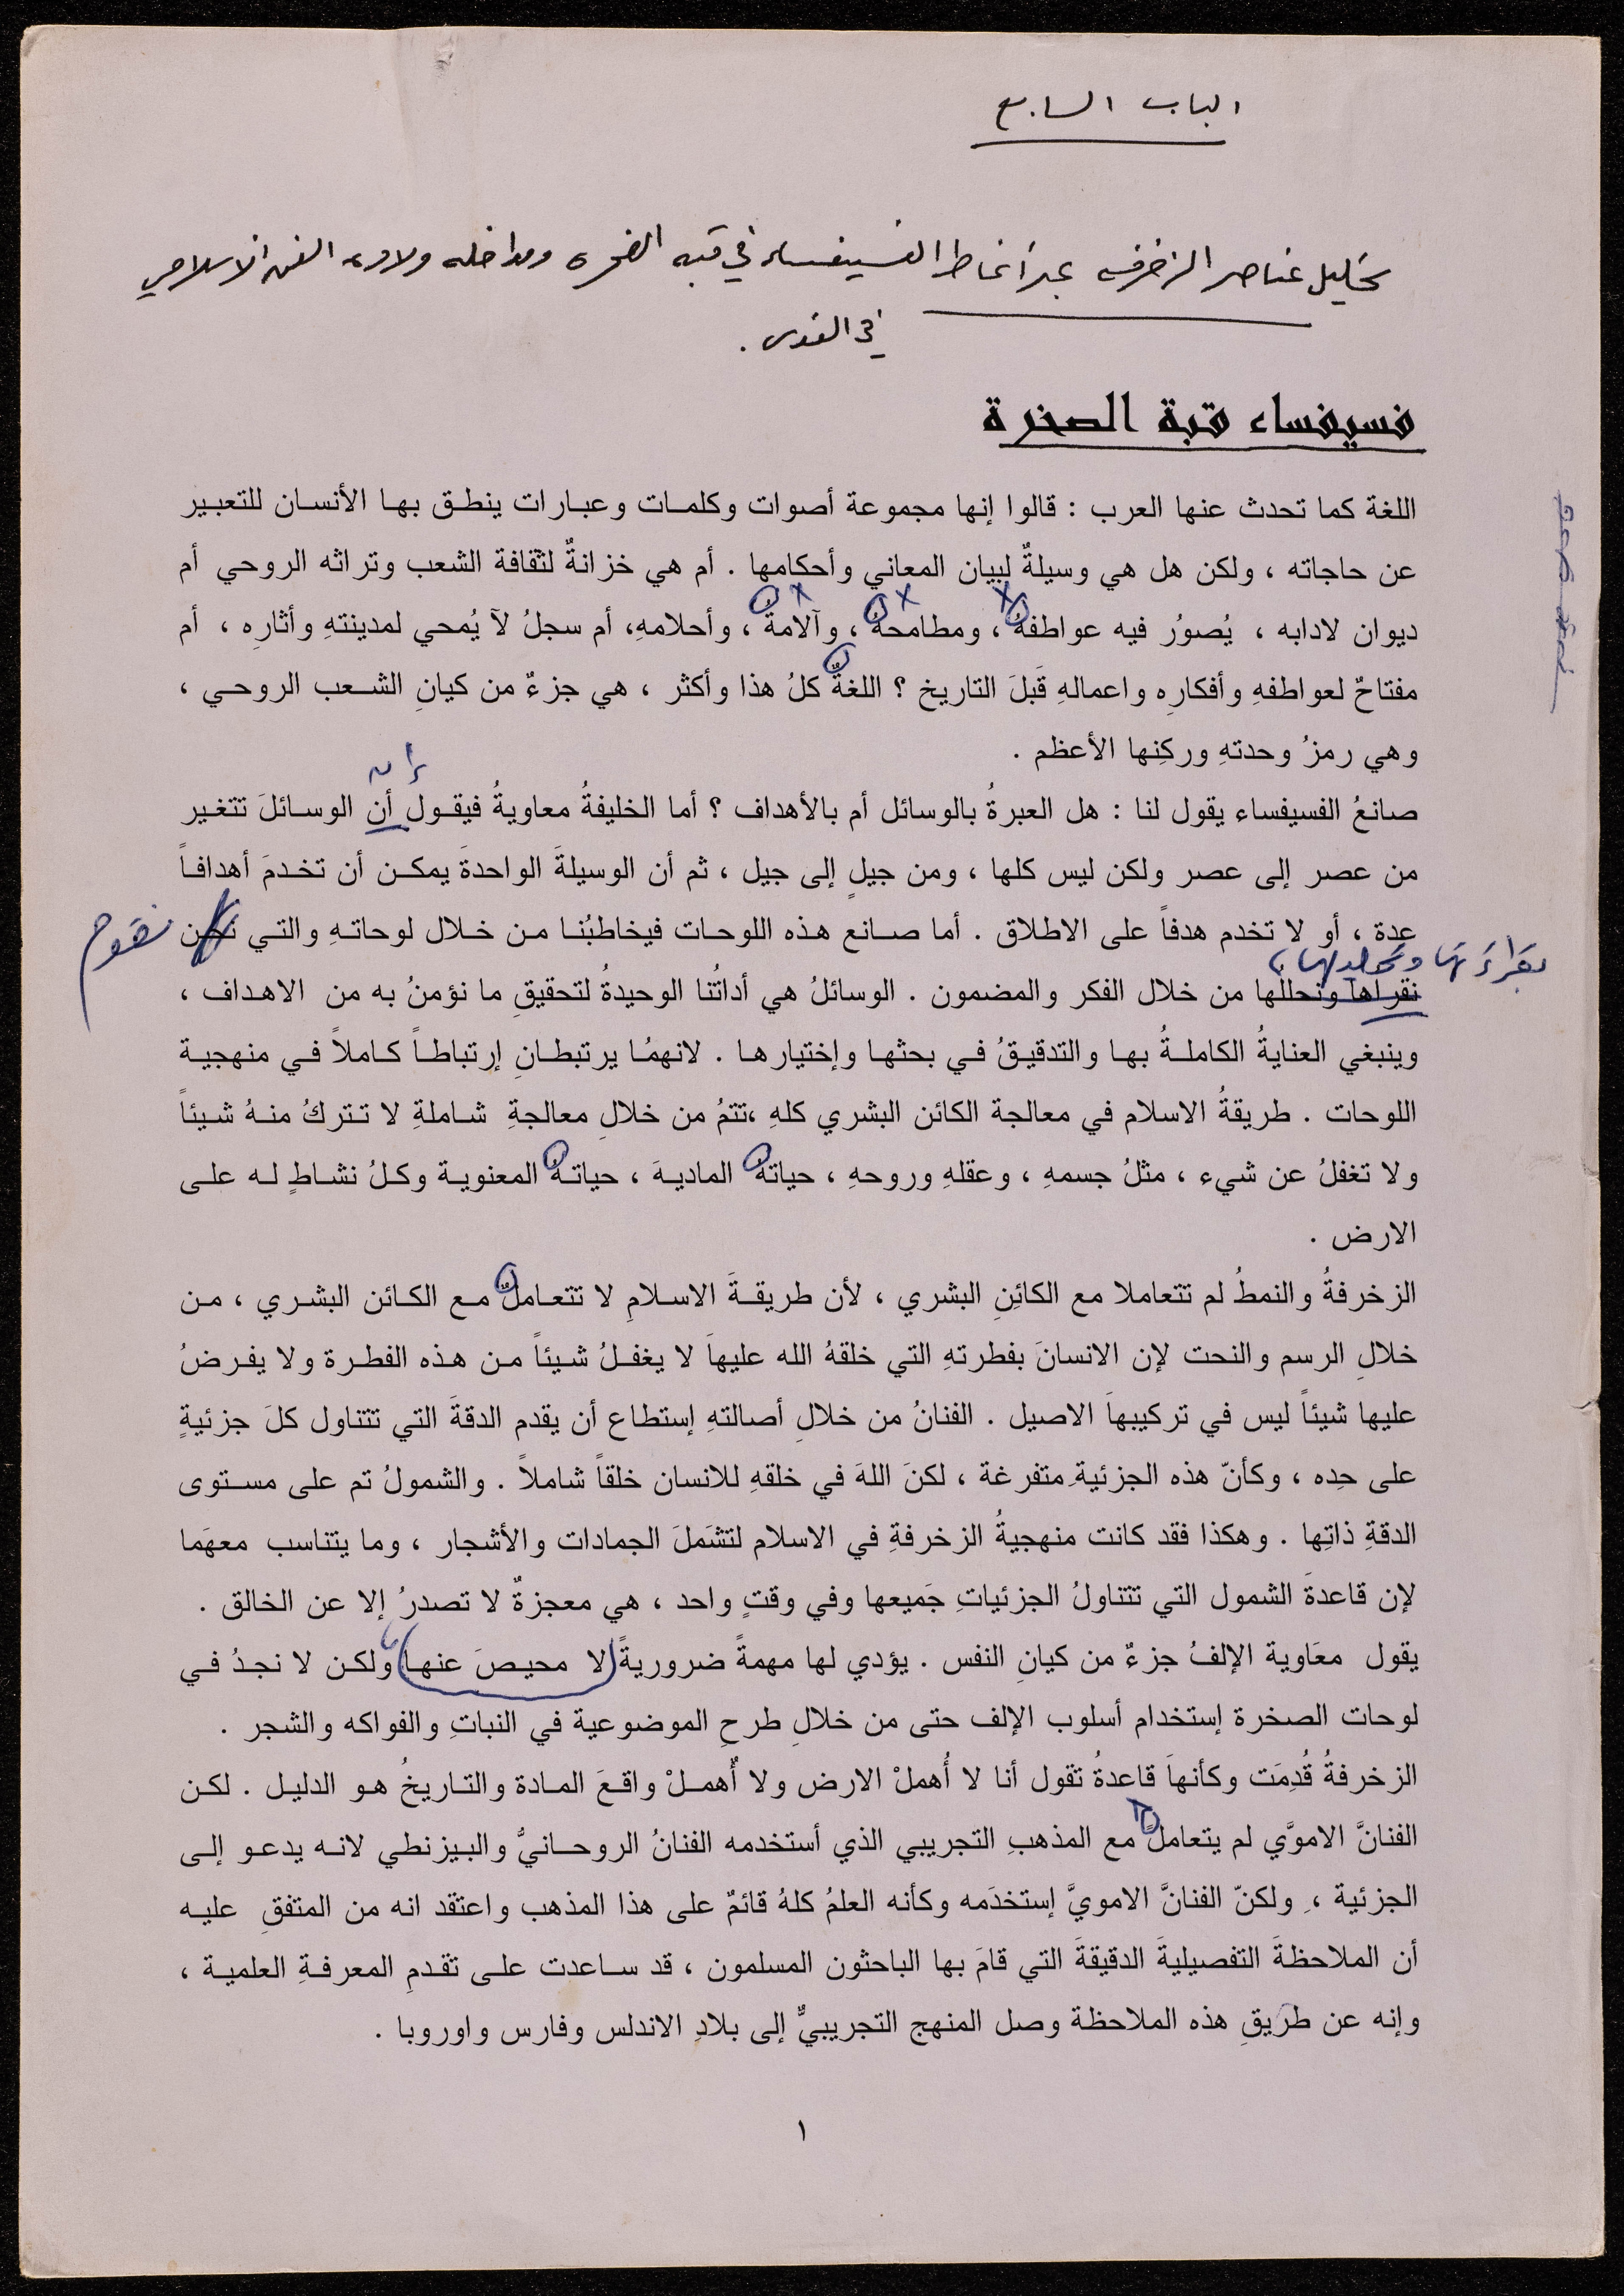 الباب السابع
تحليل عناصر الزخرفه عبر أنماط الفسيفساء في قبه الصخره ومداخله وولادة الفن الاسلامي
في القدس .
فسيفساء قبة الصخرة
اللغة كما تحدث عنها العرب : قالوا إنها مجموعة أصوات وكلمات وعبارات ينطق بها الأنسان للتعبير
عن حاجاته ، ولكن هل هي وسيلةٌ لبيان المعاني وأحكامها . أم هي خزانةٌ لثقافة الشعب وتراثه الروحي أم
ديوان لادابه ، يُصورُ فيه عواطفهُ ، ومطامحهُ ، وآلامهُ ، وأحلامهِ، أم سجلُ لآ يُمحي لمدينتهِ وأثارِه ، أم
مفتاحٌ لعواطفهِ وأفكارِه واعمالهِ قَبلَ التاريخ ؟ اللغةٌ كلُ هذا وأكثر ، هي جزءٌ من كيانِ الشعب الروحي ،
وهي رمزُ وحدتهِ وركِنها الأعظم .
إن
صانعُ الفسيفساء يقول لنا : هل العبرةُ بالوسائل أم بالأهداف ؟ أما الخليفةُ معاويةُ فيقول أن الوسائلَ تتغير
من عصر إلى عصر ولكن ليس كلها ، ومن جيلٍ إلى جيل ، ثم أن الوسيلةَ الواحدةَ يمكن أن تخدمَ أهدافاً
عدة ، أو لا تخدم هدفاً على الاطلاق . أما صانع هذه اللوحات فيخاطبُنا من خلال لوحاتهِ والتي نحن نقوم
بقراءتها وتحليلها ،
نقراها ونحللُها من خلال الفكر والمضمون . الوسائلُ هي أداتُنا الوحيدةُ لتحقيقِ ما نؤمنُ به من الاهداف ،
وينبغي العنايةُ الكاملةُ بها والتدقيقُ في بحثها وإختيارها . لانهمُا يرتبطانِ إرتباطاً كاملاً في منهجية
اللوحات . طريقةُ الاسلام في معالجة الكائن البشري كلهِ ،تتمُ من خلالِ معالجةِ شاملةِ لا تتركُ منهُ شيئاً
ولا تغفلُ عن شيء ، مثلُ جسمهِ ، وعقلهِ وروحهِ ، حياتهُ الماديةَ ، حياتهُ المعنوية وكلُ نشاطٍ له على
الارض .
الزخرفةُ والنمطُ لم تتعاملا مع الكائِنِ البشري ، لأن طريقةَ الاسلامِ لا تتعاملٌ مع الكائن البشري ، من
خلالِ الرسم والنحت لإن الانسانَ بفطرتهِ التي خلقهُ الله عليهاَ لا يغفلُ شيئاً من هذه الفطرة ولا يفرضُ
عليها شيئاً ليس في تركيبهاَ الاصيل . الفنانُ من خلالِ أصالتهِ إستطاع أن يقدم الدقةَ التي تتناول كلَ جزئيةٍ
على حِده ، وكأنّ هذه الجزئيةِ متفرغة ، لكنَ اللهَ في خلقهِ للانسان خلقاً شاملاً . والشمولُ تم على مستوى
الدقةِ ذاتِها . وهكذا فقد كانت منهجيةُ الزخرفةِ في الاسلام لتشَملَ الجمادات والأشجار ، وما يتناسب معهَما
لإن قاعدةَ الشمول التي تتناولُ الجزئياتِ جَميعها وفي وقتٍ واحد ، هي معجزةٌ لا تصدرُ إلا عن الخالق .
يقول معَاوية الإلفُ جزءٌ من كيانِ النفس . يؤدي لها مهمةً ضروريةً (لا محيصَ عنها) ولكن لا نجدُ في
لوحات الصخرة إستخدام أسلوب الإلف حتى من خلالِ طرحِ الموضوعية في النباتِ والفواكه والشجر .
الزخرفةُ قُدِمَت وكأنهاَ قاعدةُ تقول أنا لا أُهملْ الارض ولا أُهملْ واقعَ المادة والتاريخُ هو الدليل . لكن
الفنانَّ الاموَّي لم يتعاملً مع المذهبِ التجريبي الذي أستخدمه الفنانُ الروحانيُّ والبيزنطي لانه يدعو إلى
الجزئية ، ِ ولكنّ الفنانَّ الامويَّ إستخدَمه وكأنه العلمُ كلهُ قائمٌ على هذا المذهب واعتقد انه من المتفقِ عليه
أن الملاحظةَ التفصيليةَ الدقيقةَ التي قامَ بها الباحثون المسلمون ، قد ساعدت على تقدمِ المعرفةِ العلمية ،
وإنه عن طرَيقِ هذه الملاحظة وصل المنهج التجريبيٌّ إلى بلادِ الاندلس وفارس واوروبا .
١